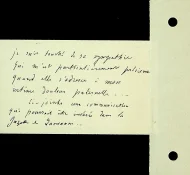 je suis touché de sa sympathie
qui m'est particulièrement précieuse
quand elle s'adresse à mon
intime douleur paternelle ...
... joindre une communication
qui pourrait être insérée dans la
Gazette